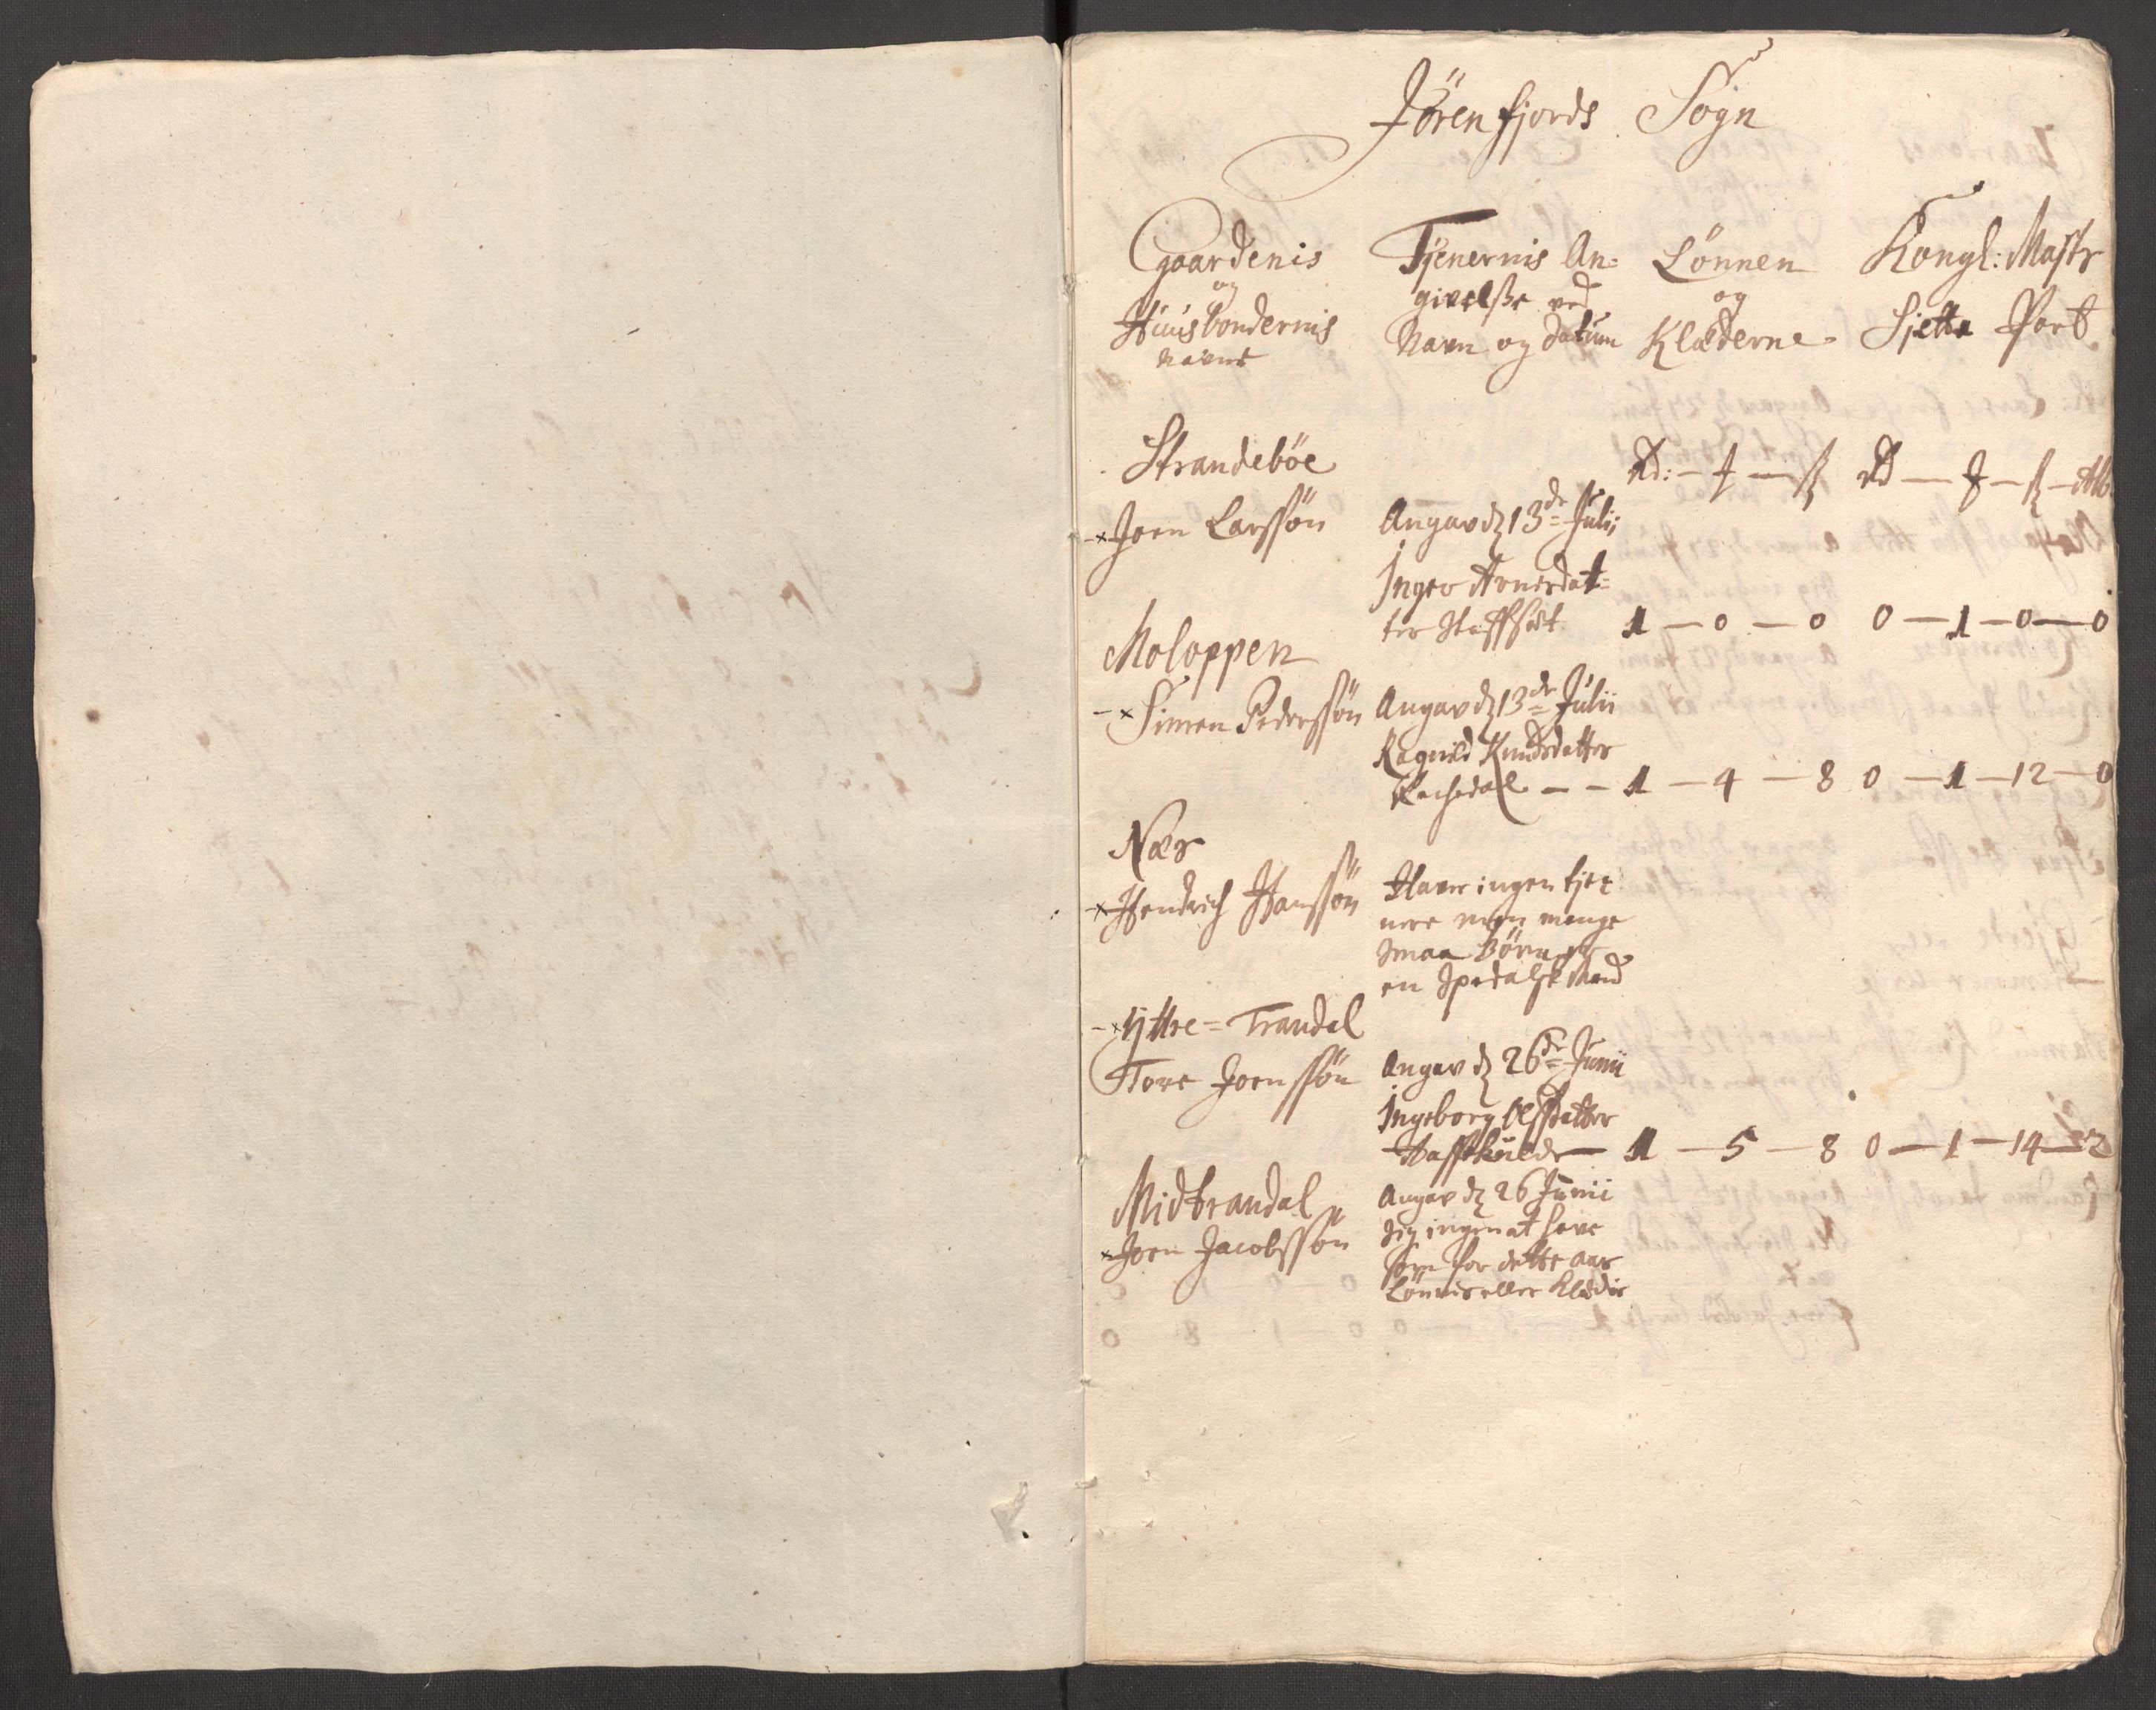 Jörenfjords Sogn
Gaardenis
og
Huusbondernis
Navne
Tjenernis An-
givelße ved
Navn og datum
Lönnen
og
Klæderne
Kongl: Maÿts
Sjette Part
Strandeböe
Rd: — — ß Rd — — ß — Alb
Joen Larssön
Angav dʒ 13de Julii
Inger Arnesdat-
ter
1 — 0 — 0 0 — 1 — 0 — 0
Moloppen
Simen Pederssön
Angav dʒ 13de Julii
Ragnild Knudsdatter
1 — 4 — 8 0 — 1 — 12 — 0
Nær
Hendrich Hanssön
Haver ingen tje-
nere men mange
smaa Börn og
en Spedalsk Mand
Yttre = Trandal
Tore Joenssön
Angav dʒ 26de Junii
Ingeborg Olsdatter
1 — 5 — 8 0 — 1 — 14 — 2
Midtrandal
Joen Jacobssön
Angav dʒ 26 Junii
sig ingen at have
som for dette aar
Lönnis eller Klædis